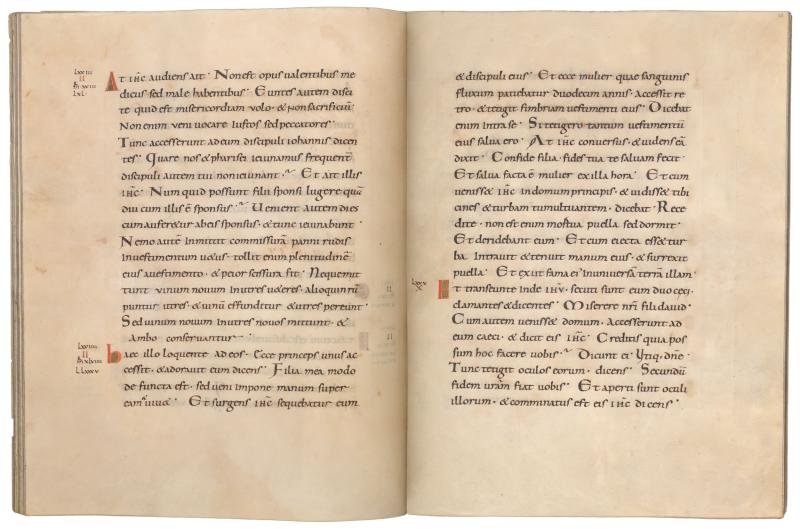 At ihc audiens ait · Non est opus ualentibus me
dicus sed male habentibus · Euntes autem disci
te quid est misericordiam volo · & non sacrificiū
Non enim veni vocare Iustos sed peccatores ·
Tunc accesserunt ad eum discipuli iohannis dicen
tes · Quare nos & pharisei ieiunamus frequent̄
discipuli autem tui non ieiunant · Et ait illis
ihc · Num quid possunt filii sponsi lugere quā
diu cum illis ē sponsus · Uenient autem dies
cum auferetur ab eis sponsus · & tunc ieiunabunt
Nemo autē Inmittit commissurā panni rudis
In uestimentum u&us · tollit enim plenitudinē
eius a uestimento · & peior scissura fit · Neque mit
tunt uinum nouum In utres u&eres · alioquin rū
puntur utres · & uinū effunditur & utres pereunt ·
Sed uinum nouum In utres nouos mittunt · &
Ambo conseruantur
haec illo loquente ad eos · Ecce princeps unus ac
cessit · & adorauit eum dicens · Filia mea modo
de functa est · sed ueni impone manum super
eam & uiu& · Et surgens ihc sequebatur eum
& discipuli eius · Et ecce mulier quae sanguinis
fluxum patiebatur duodecim annis · Accessit re
tro · & tetigit fimbriam uestimenti eius · Dicebat
enim Intra se · Si tetigero tantum uestimentū
eius salua ero · At ihc conuersus · & uidens eā
dixit · Confide filia fides tua te saluam fecit
Et salua facta ē mulier ex illa hora · Et cum
uenisset ihc In domum principis · & uidiss& tibi
cines & turbam tumultuantem · dicebat · Rece
dite · non est enim mortua puella sed dormit ·
Et deridebant eum · Et cum eiecta ess& tur
ba Intrauit & tenuit manum eius · & surrexit
puella · Et exiit fama ei Inuniuersā terrā illam ·
Et transeunte inde ihu · secuti sunt eum duo ceci ·
clamantes & dicentes · Miserere nr̄i fili dauid ·
Cum autem uenisset domum · Accesserunt ad
eum caeci · & dicit eis ihc · Creditis quia pos
sum hoc facere uobis · Dicunt ei · Utiq, dn̄e ·
Tunc tetigit oculos eorum · dicens · Secundū
fidem ur̄am fiat uobis · Et aperti sunt oculi
illorum · & comminatus est eis ihc dicens ·